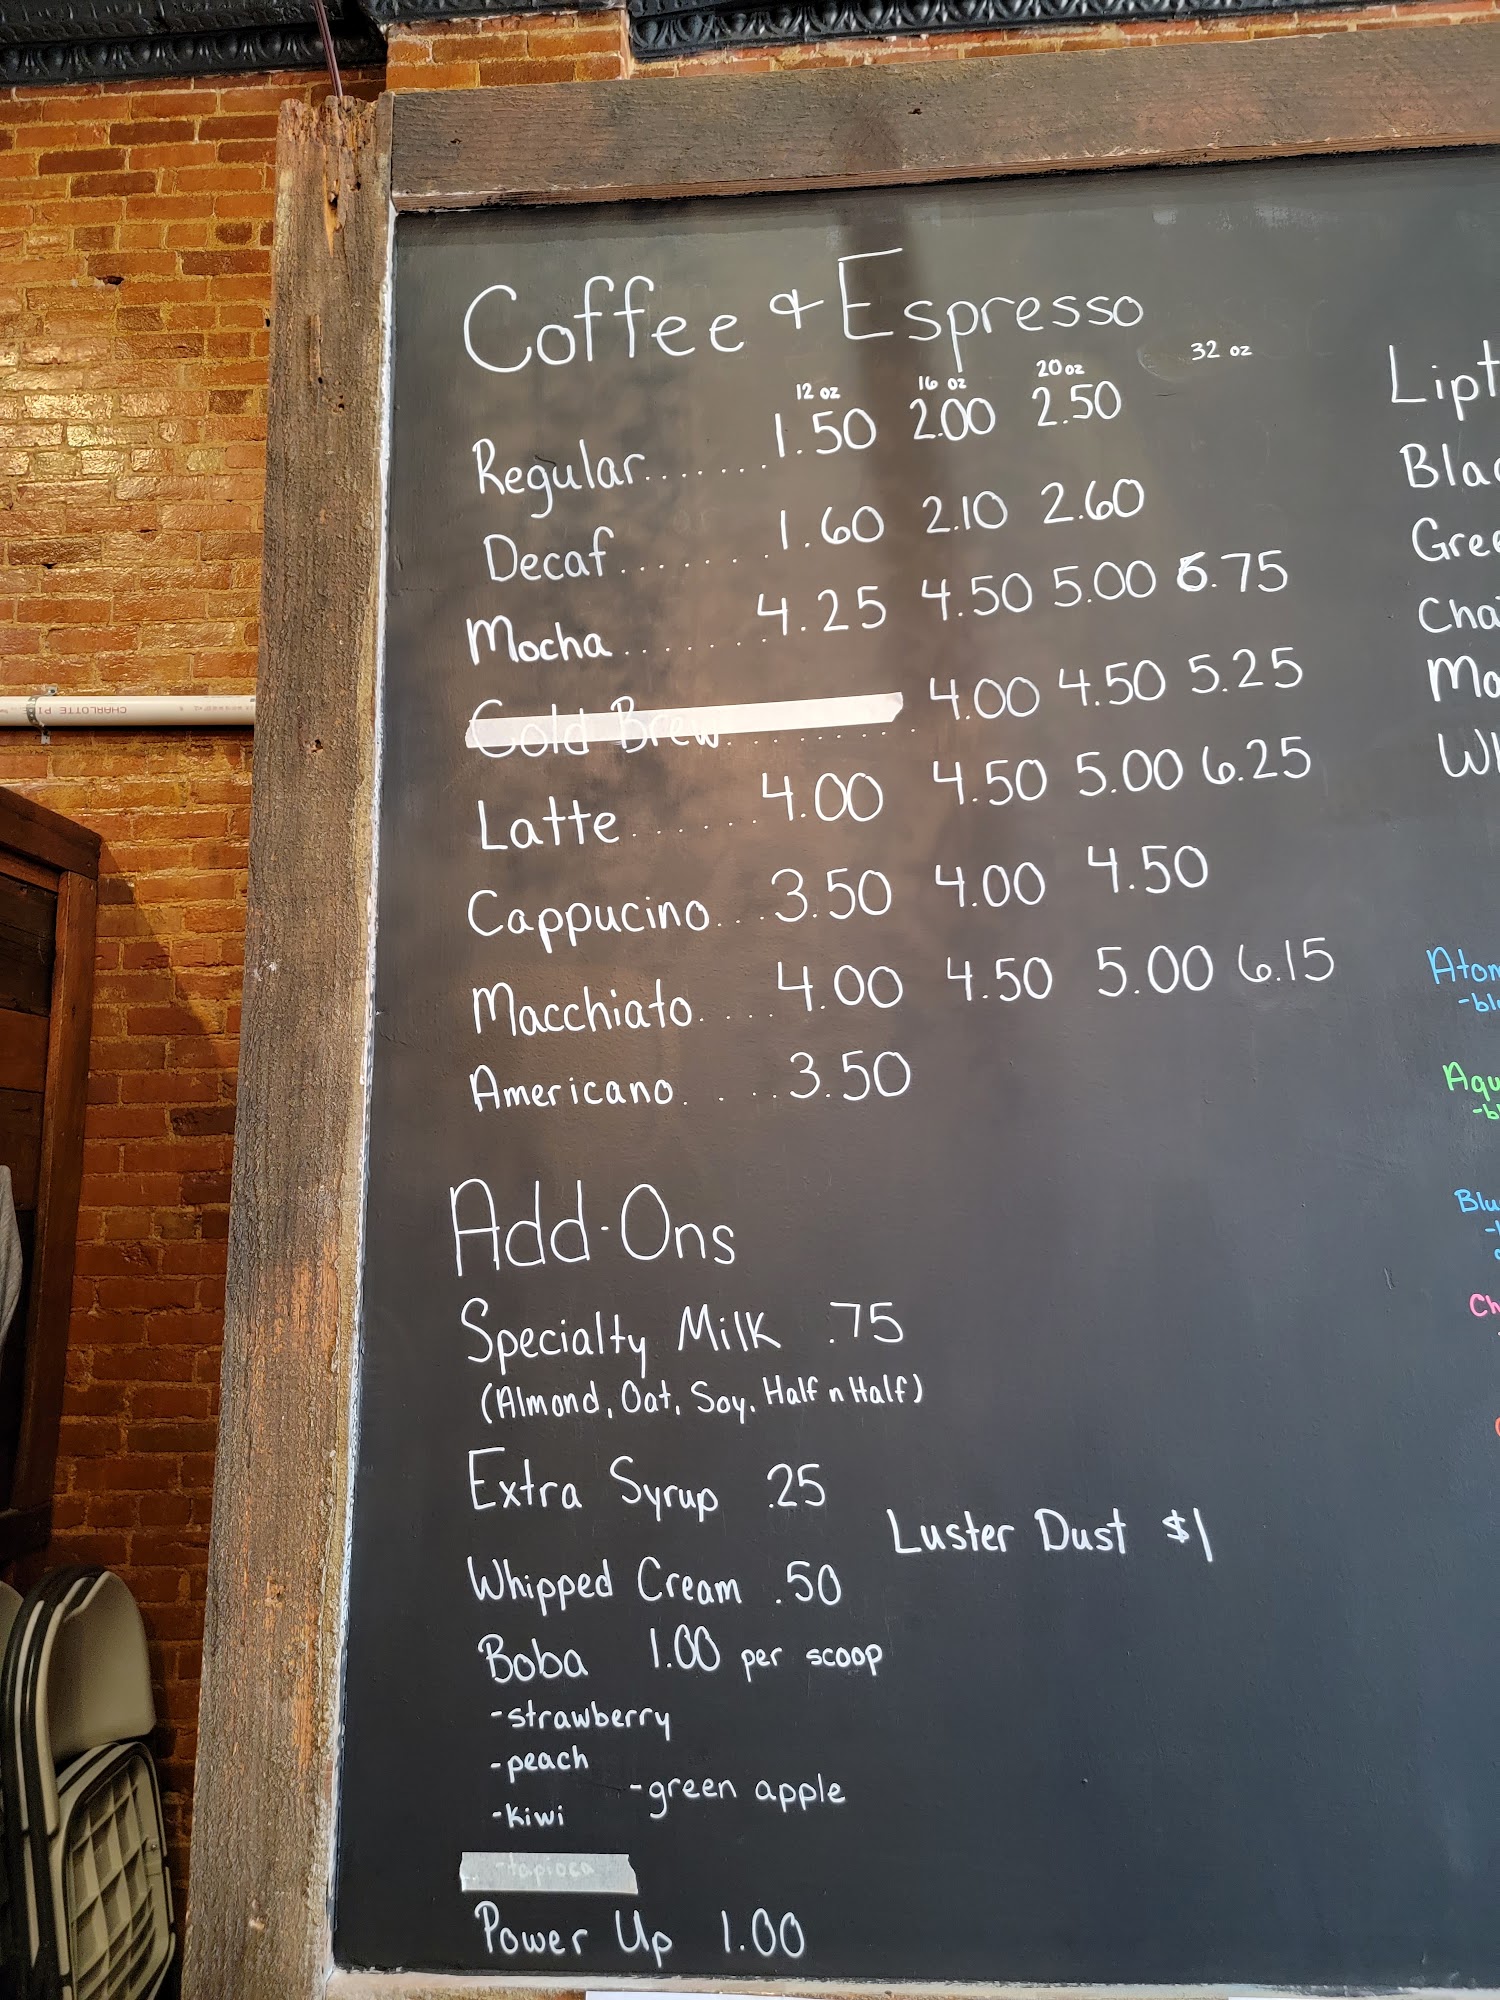 Coffee & Espresso
12 oz 16 oz 20 oz 32 oz
Regular....... 1.50 2.00 2.50
Decaf....... 1.60 2.10 2.60
Mocha....... 4.25 4.50 5.00 6.75
Cold Brew......... 4.00 4.50 5.25
Latte....... 4.00 4.50 5.00 6.25
Cappucino... 3.50 4.00 4.50
Macchiato.... 4.00 4.50 5.00 6.15
Americano..... 3.50
Add-Ons
Specialty Milk .75
(Almond, Oat, Soy, Half n Half)
Extra Syrup .25
Luster Dust $1
Whipped Cream .50
Boba 1.00 per scoop
-strawberry
-peach
-green apple
-kiwi
-tapioca
Power Up 1.00
CHARLOTTE PI